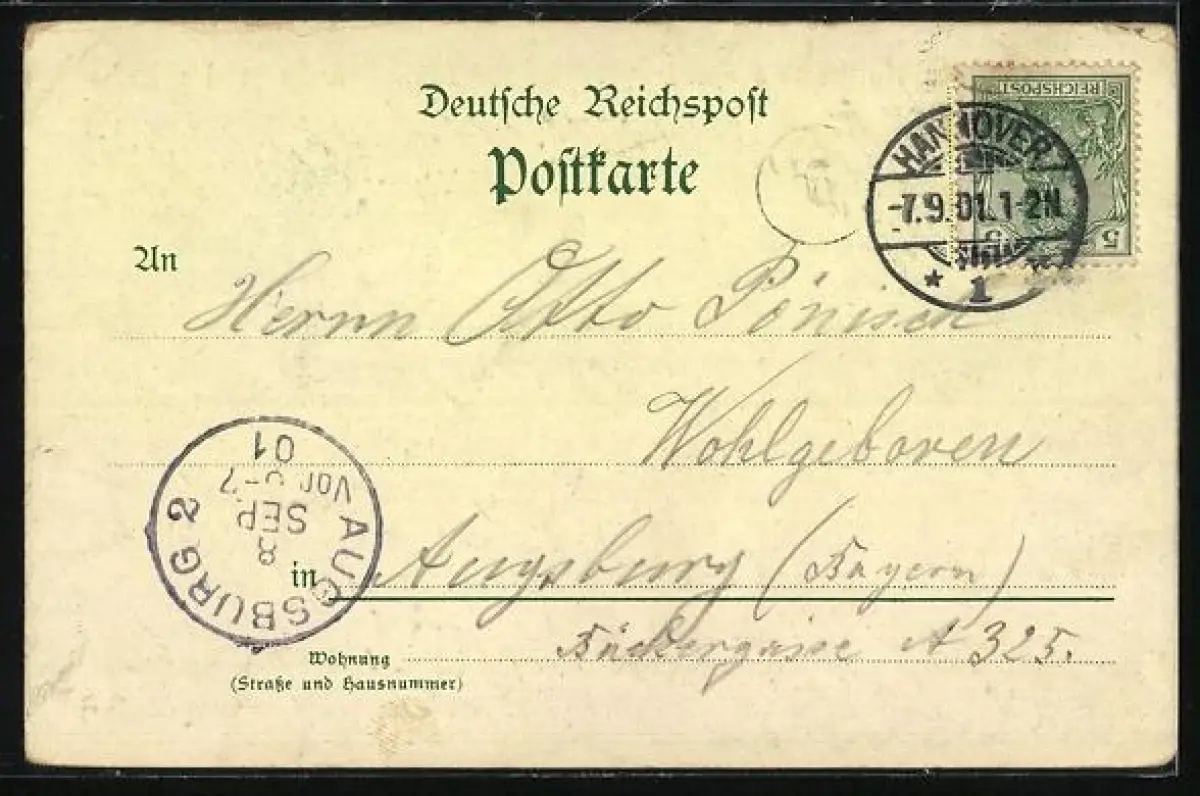 Deutsche Reichspost
Postkarte
REICHSPOST
5 5
HANNOVER
-7.9.01.1-2N
* 1 *
An
Herrn Otto Pönisch
Wohlgeboren
in Augsburg (Bayern)
Wohnung Bäckergasse A 325.
(Straße und Hausnummer)
AUGSBURG 2
8
SEP
Vor -7
01